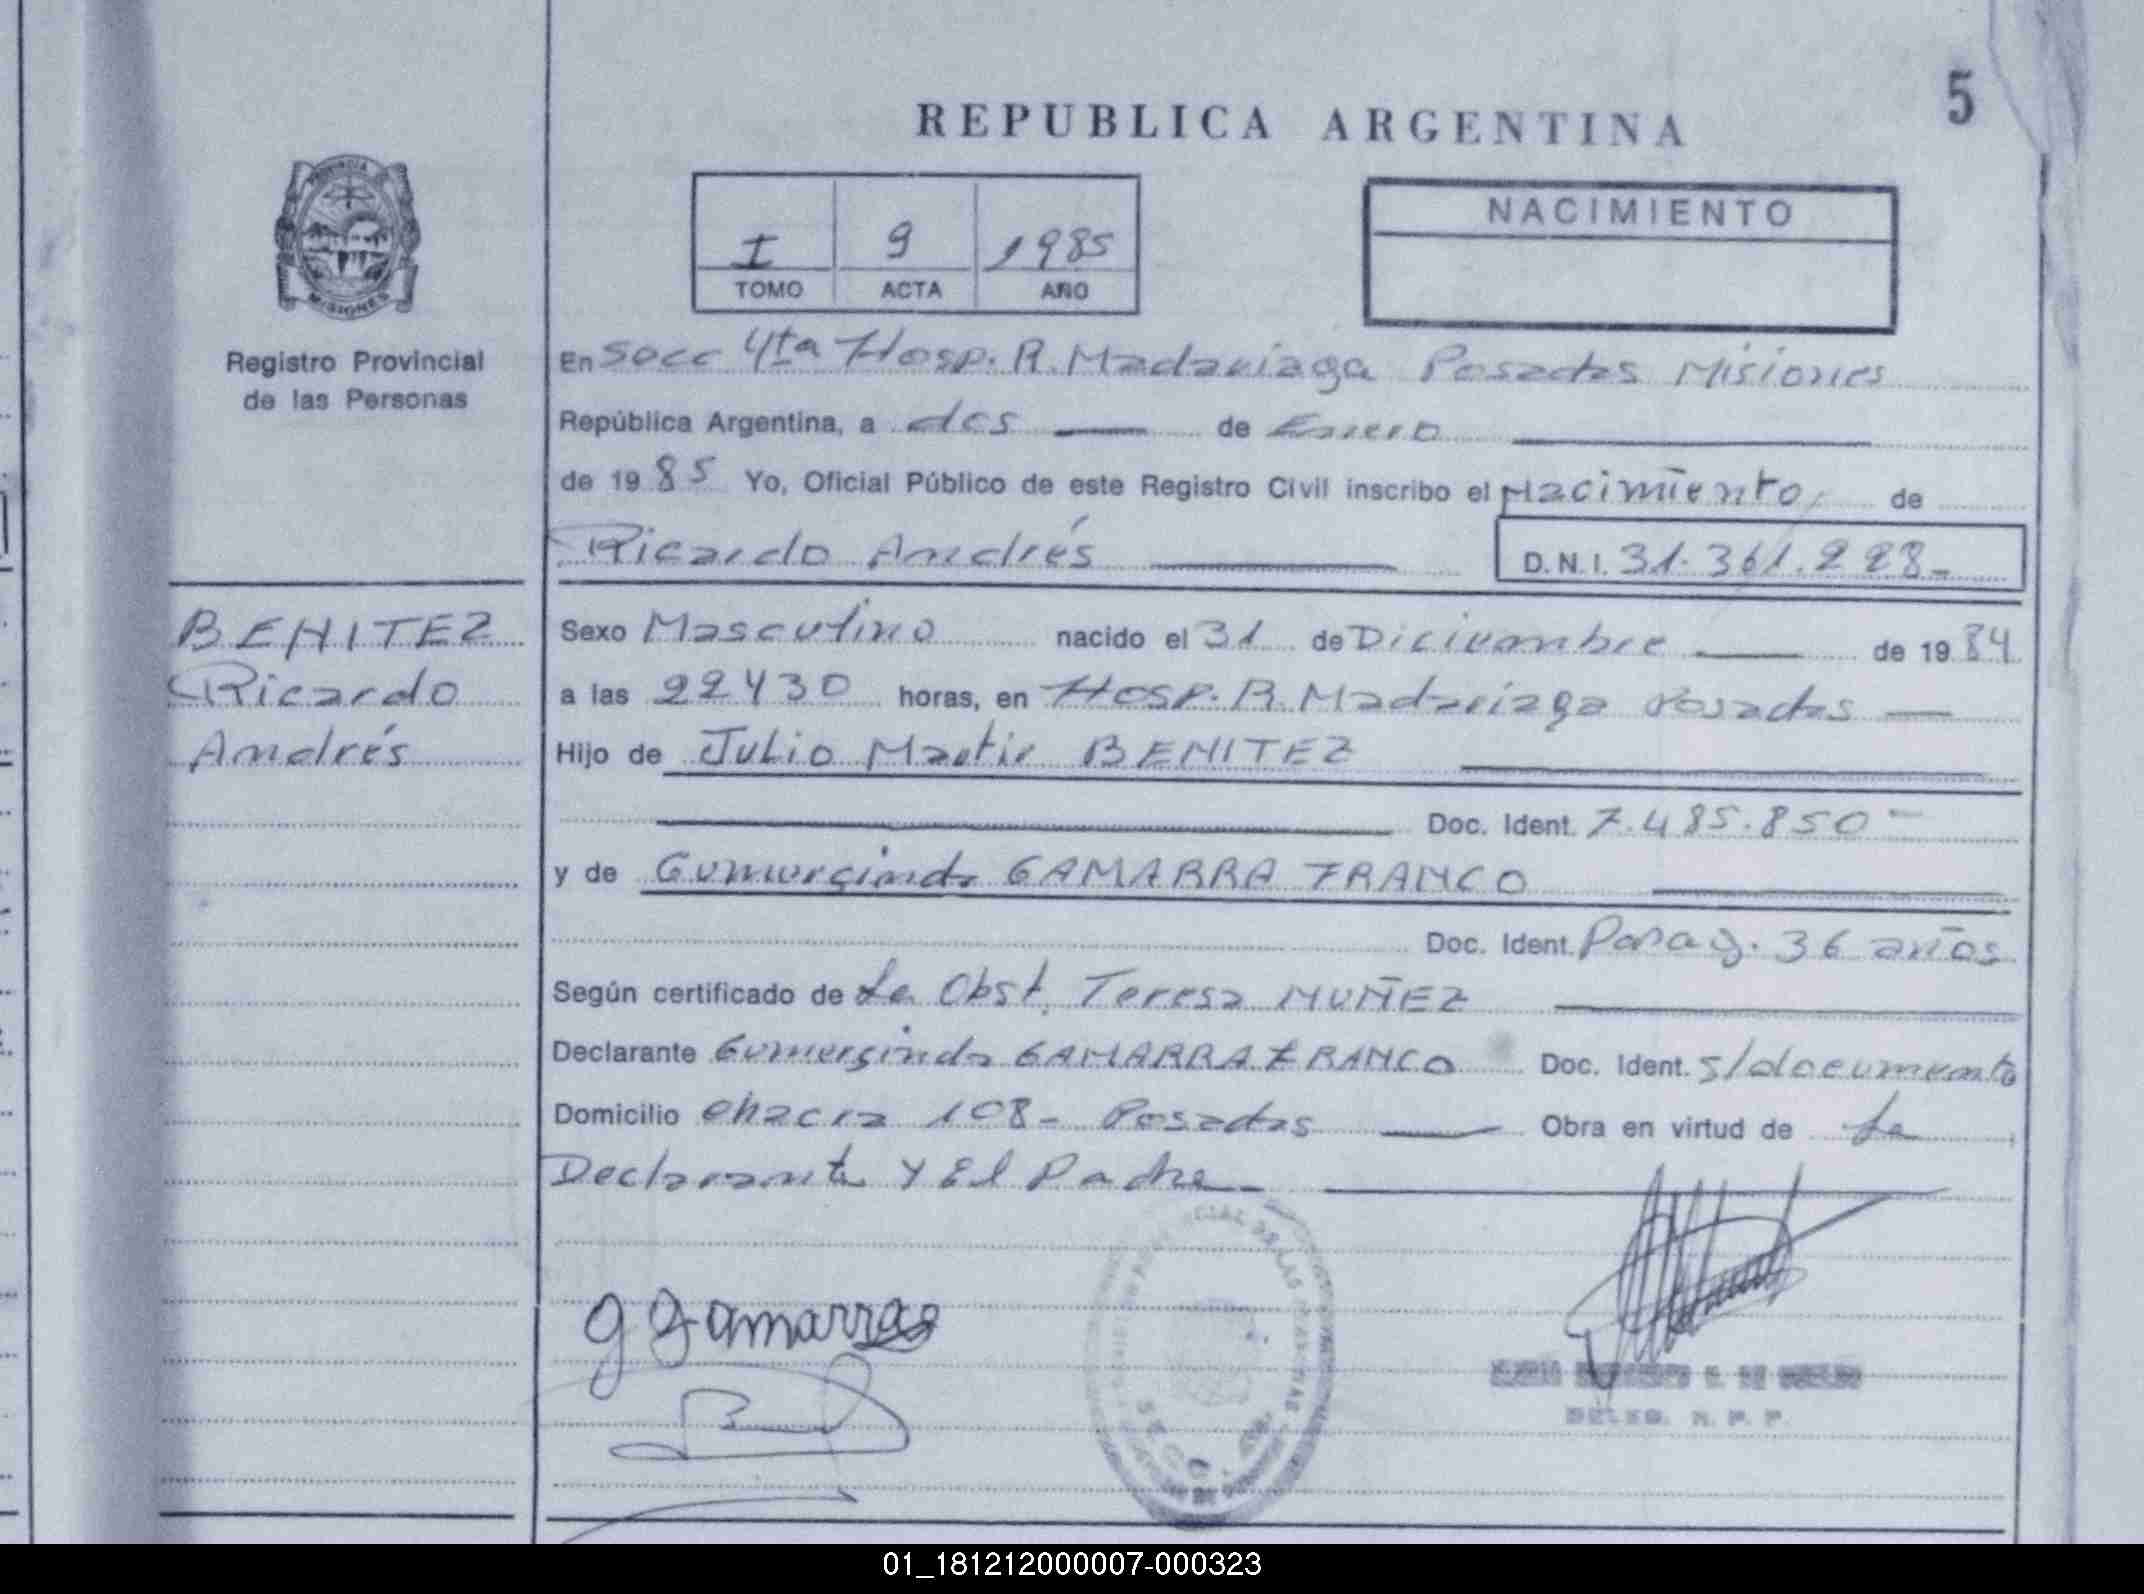 5
REPUBLICA ARGENTINA
PROVINCIA
MISIONES
Registro Provincial
de las Personas
I 9 1985
TOMO ACTA AÑO
NACIMIENTO
En Secc 4ta Hosp. R. Madariaga Posadas Misiones
República Argentina, a dos de Enero
de 1985 Yo, Oficial Público de este Registro Civil inscribo el Nacimiento de
Ricardo Andrés D.N.I. 31.361.228-
BENITEZ
Ricardo
Andrés
Sexo Masculino nacido el 31 de Diciembre de 1984
a las 22 y 30 horas, en Hosp. R. Madariaga Posadas
Hijo de Julio Martir BENITEZ
Doc. Ident. 7.485.850-
y de Gumercinda GAMARRA FRANCO
Doc. Ident. Parag. 36 años
Según certificado de La Obst. Teresa MUÑEZ
Declarante Gumersinda GAMARRA FRANCO Doc. Ident. s/documento
Domicilio chacra 108- Posadas Obra en virtud de La
Declarante y El Padre
G Gamarra
CIAL DE LAS
SECC.
DELEG. R. P. P.
01_181212000007-000323